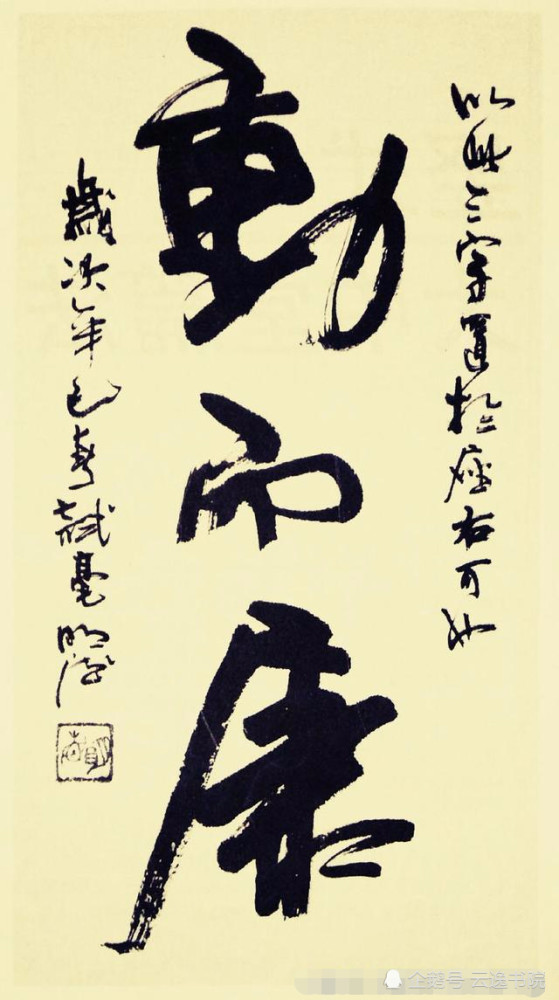 以此三字置於座右可也
動而康
歲次辛巳春試毫
企鹅号 云逸书院